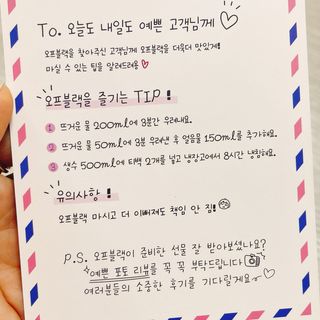 To. 오늘도 내일도 예쁜 고객님께 ♡
오프블랙을 찾아주신 고객님께 오프블랙을 더욱더 맛있게!
마실 수 있는 팁을 알려드려용 ♡
오프블랙을 즐기는 TIP!
1 뜨거운 물 200ml에 3분간 우려내요.
2 뜨거운 물 50ml에 3분 우려낸 후 얼음물 150ml를 추가해요.
3 생수 500ml에 티백 2개를 넣고 냉장고에서 8시간 냉침해요.
유의사항!
오프블랙 마시고 더 이뻐져도 책임 안 짐!
P.S. 오프블랙이 준비한 선물 잘 받아보셨나요?
예쁜 포토 리뷰를 꼭 꼭 부탁드립니다
여러분들의 소중한 후기를 기다릴게요~♡